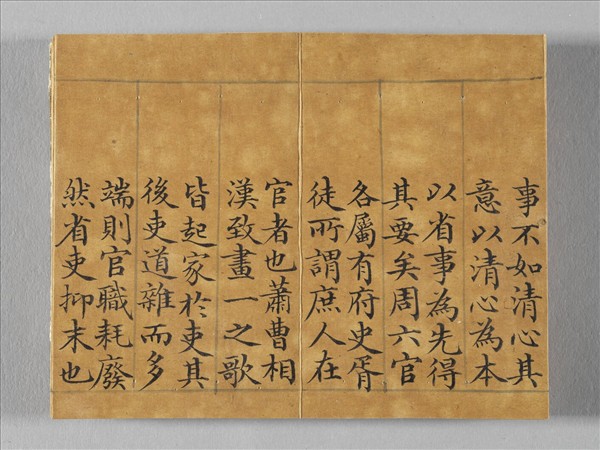 事不如清心其
意以清心為本
以省事為先得
其要矣周六官
各屬有府史胥
徒所謂庶人在
官者也蕭曹相
漢致畫一之歌
皆起家於吏其
後吏道雜而多
端則官職耗廢
然省吏抑末也